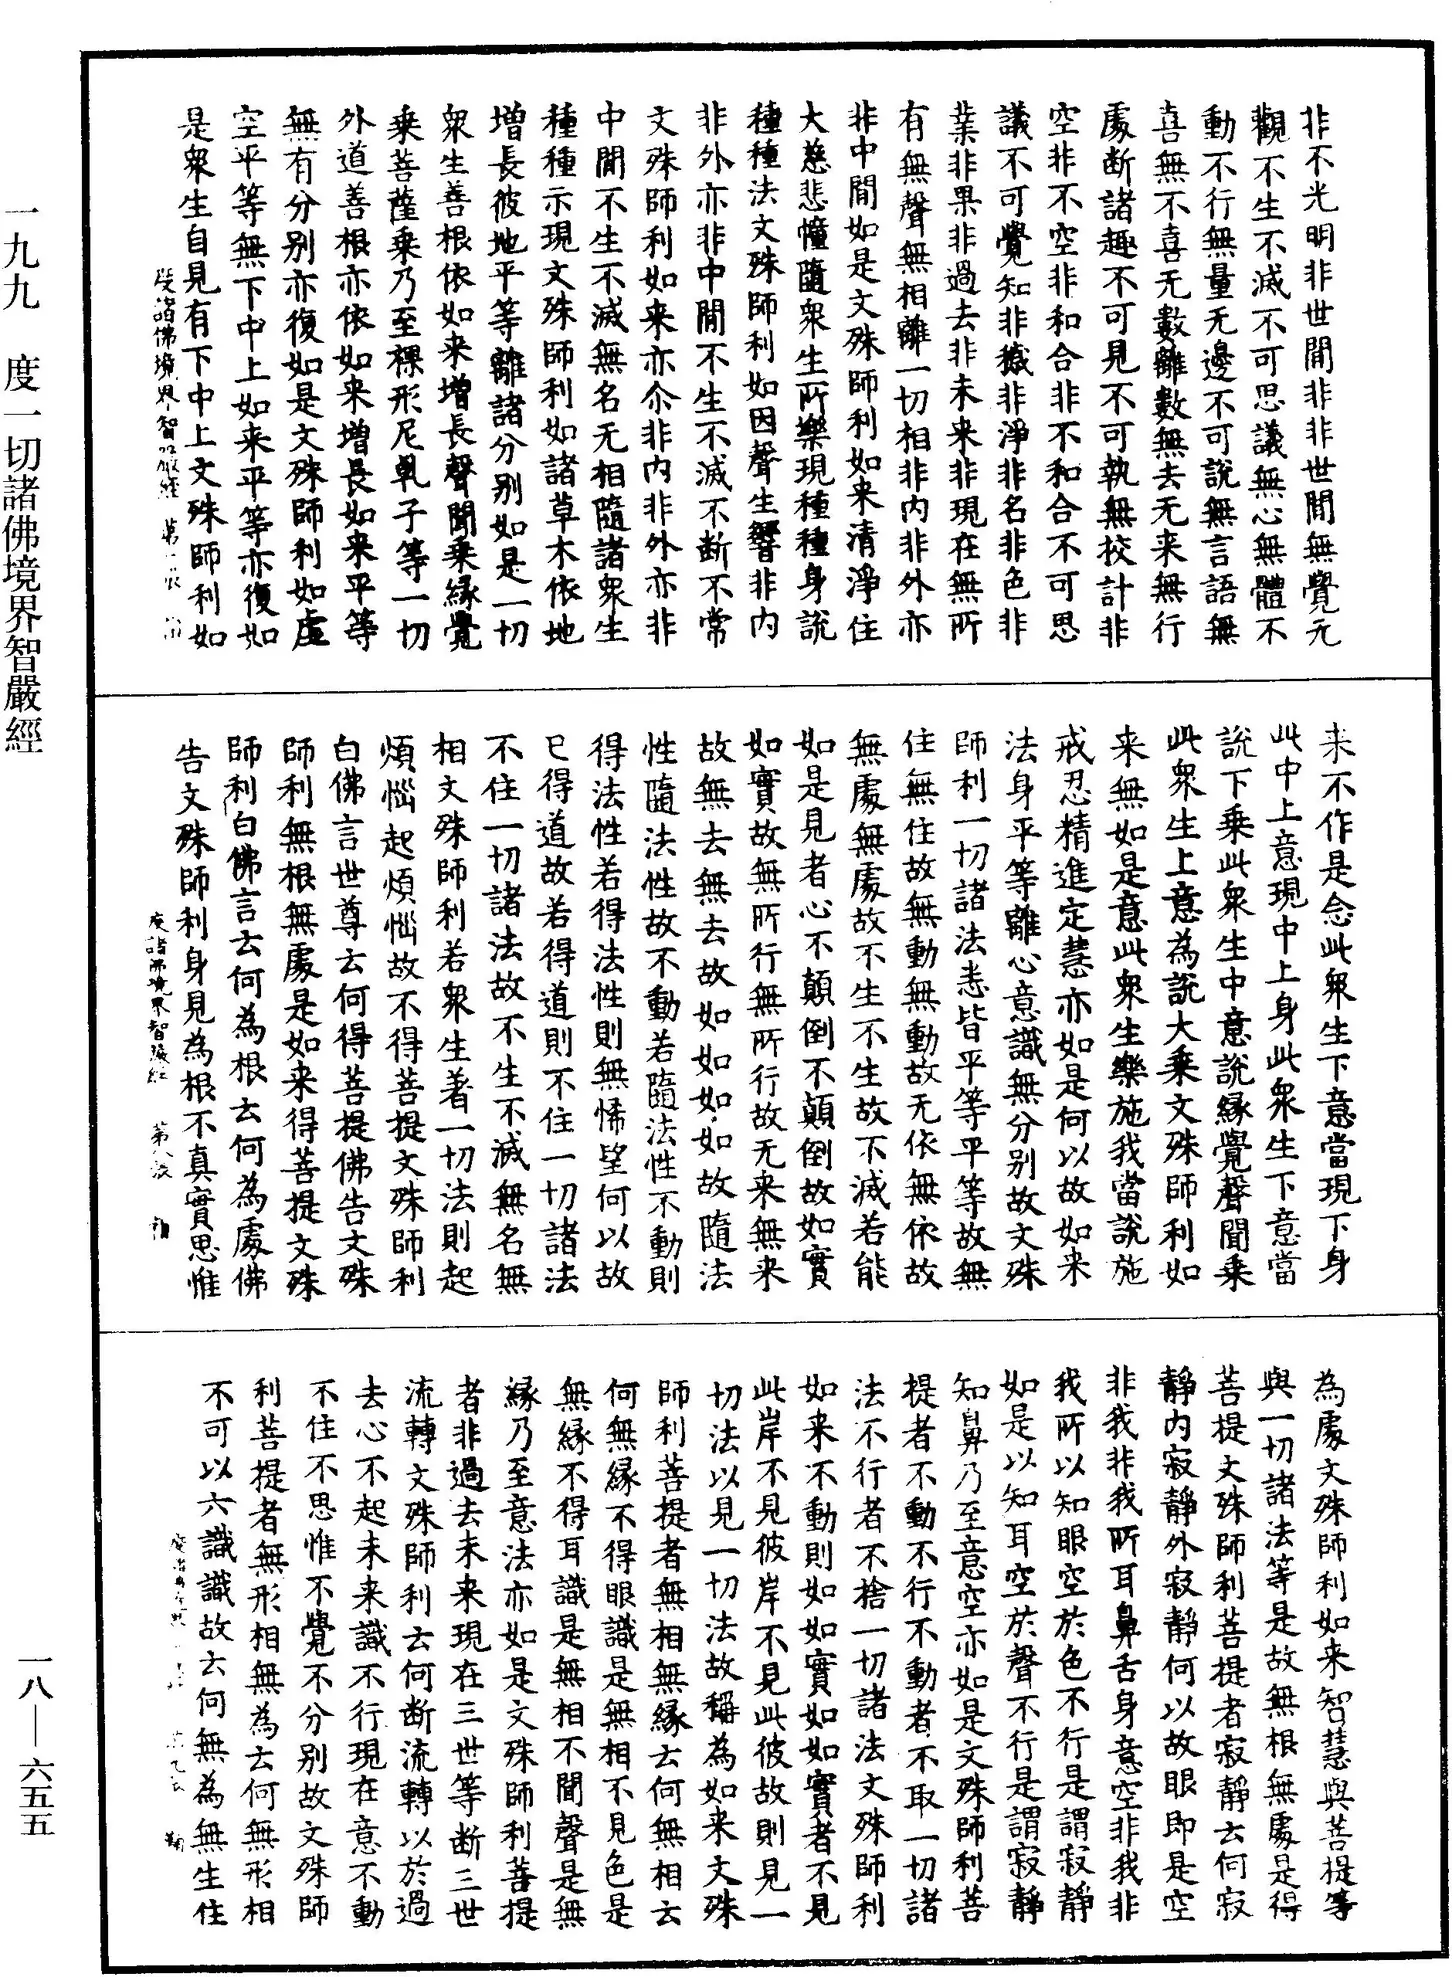 非不光明非世間非非世間無覺无
觀不生不滅不可思議無心無體不
動不行無量无邊不可說無言語無
喜無不喜无數離數無去无来無行
處断諸趣不可見不可執無挍計非
空非不空非和合非不和合不可思
議不可覺知非穢非淨非名非色非
業非果非過去非未来非現在無所
有無聲無相離一切相非内非外亦
非中間如是文殊師利如来清淨住
大慈悲幢隨衆生所樂現種種身說
種種法文殊師利如因聲生響非内
非外亦非中間不生不滅不断不常
文殊師利如来亦尒非内非外亦非
中間不生不滅無名无相隨諸衆生
種種示現文殊師利如諸草木依地
增長彼地平等離諸分别如是一切
衆生善根依如来增長聲聞乗緣覺
乗菩薩乗乃至裸形尼乹子等一切
外道善根亦依如来增長如来平等
無有分别亦復如是文殊師利如虛
空平等無下中上如来平等亦復如
是衆生自見有下中上文殊師利如
度諸佛境界智嚴經 第
来不作是念此衆生下意當現下身
此中上意現中上身此衆生下意當
說下乗此衆生中意說緣覺聲聞乗
此衆生上意為說大乗文殊師利如
来無如是意此衆生樂施我當說施
戒忍精進定慧亦如是何以故如来
法身平等離心意識無分别故文殊
師利一切諸法悉皆平等平等故無
住無住故無動無動故无依無依故
無處無處故不生不生故不滅若能
如是見者心不顛倒不顛倒故如實
如實故無所行無所行故无来無来
故無去無去故如如如如故隨法
性隨法性故不動若隨法性不動則
得法性若得法性則無悕望何以故
已得道故若得道則不住一切諸法
不住一切諸法故不生不滅無名無
相文殊師利若衆生著一切法則起
煩惱起煩惱故不得菩提文殊師利
白佛言世尊云何得菩提佛告文殊
師利無根無處是如来得菩提文殊
師利白佛言云何為根云何為處佛
告文殊師利身見為根不真實思惟
度諸佛境界智嚴經 第八張
為處文殊師利如来智慧與菩提等
與一切諸法等是故無根無處是得
菩提文殊師利菩提者寂靜云何寂
靜内寂靜外寂靜何以故眼即是空
非我非我所耳鼻舌身意空非我非
我所以知眼空於色不行是謂寂靜
如是以知耳空於聲不行是謂寂靜
知鼻乃至意空亦如是文殊師利菩
提者不動不行不動者不取一切諸
法不行者不捨一切諸法文殊師利
如来不動則如如實如如實者不見
此岸不見彼岸不見此彼故則見一
切法以見一切法故稱為如来文殊
師利菩提者無相無緣云何無相云
何無緣不得眼識是無相不見色是
無緣不得耳識是無相不聞聲是無
緣乃至意法亦如是文殊師利菩提
者非過去未来現在三世等断三世
流轉文殊師利云何断流轉以於過
去心不起未来識不行現在意不動
不住不思惟不覺不分别故文殊師
利菩提者無形相無為云何無形相
不可以六識識故云何無為無生住
一九九 度一切諸佛境界智嚴經
一八—六五五